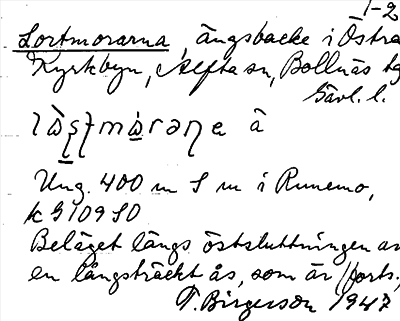 1-2
Lortmorarna, ängsbacke i Östra
Kyrkbyn, Alfta sn, Bollnäs tg
Gävl. l.
å
Ung. 400 m S m i Runemo,
k G 109 S0
Beläget längs östsluttningen av
en långsträckt ås, som är // forts.
T. Birgerson 1947